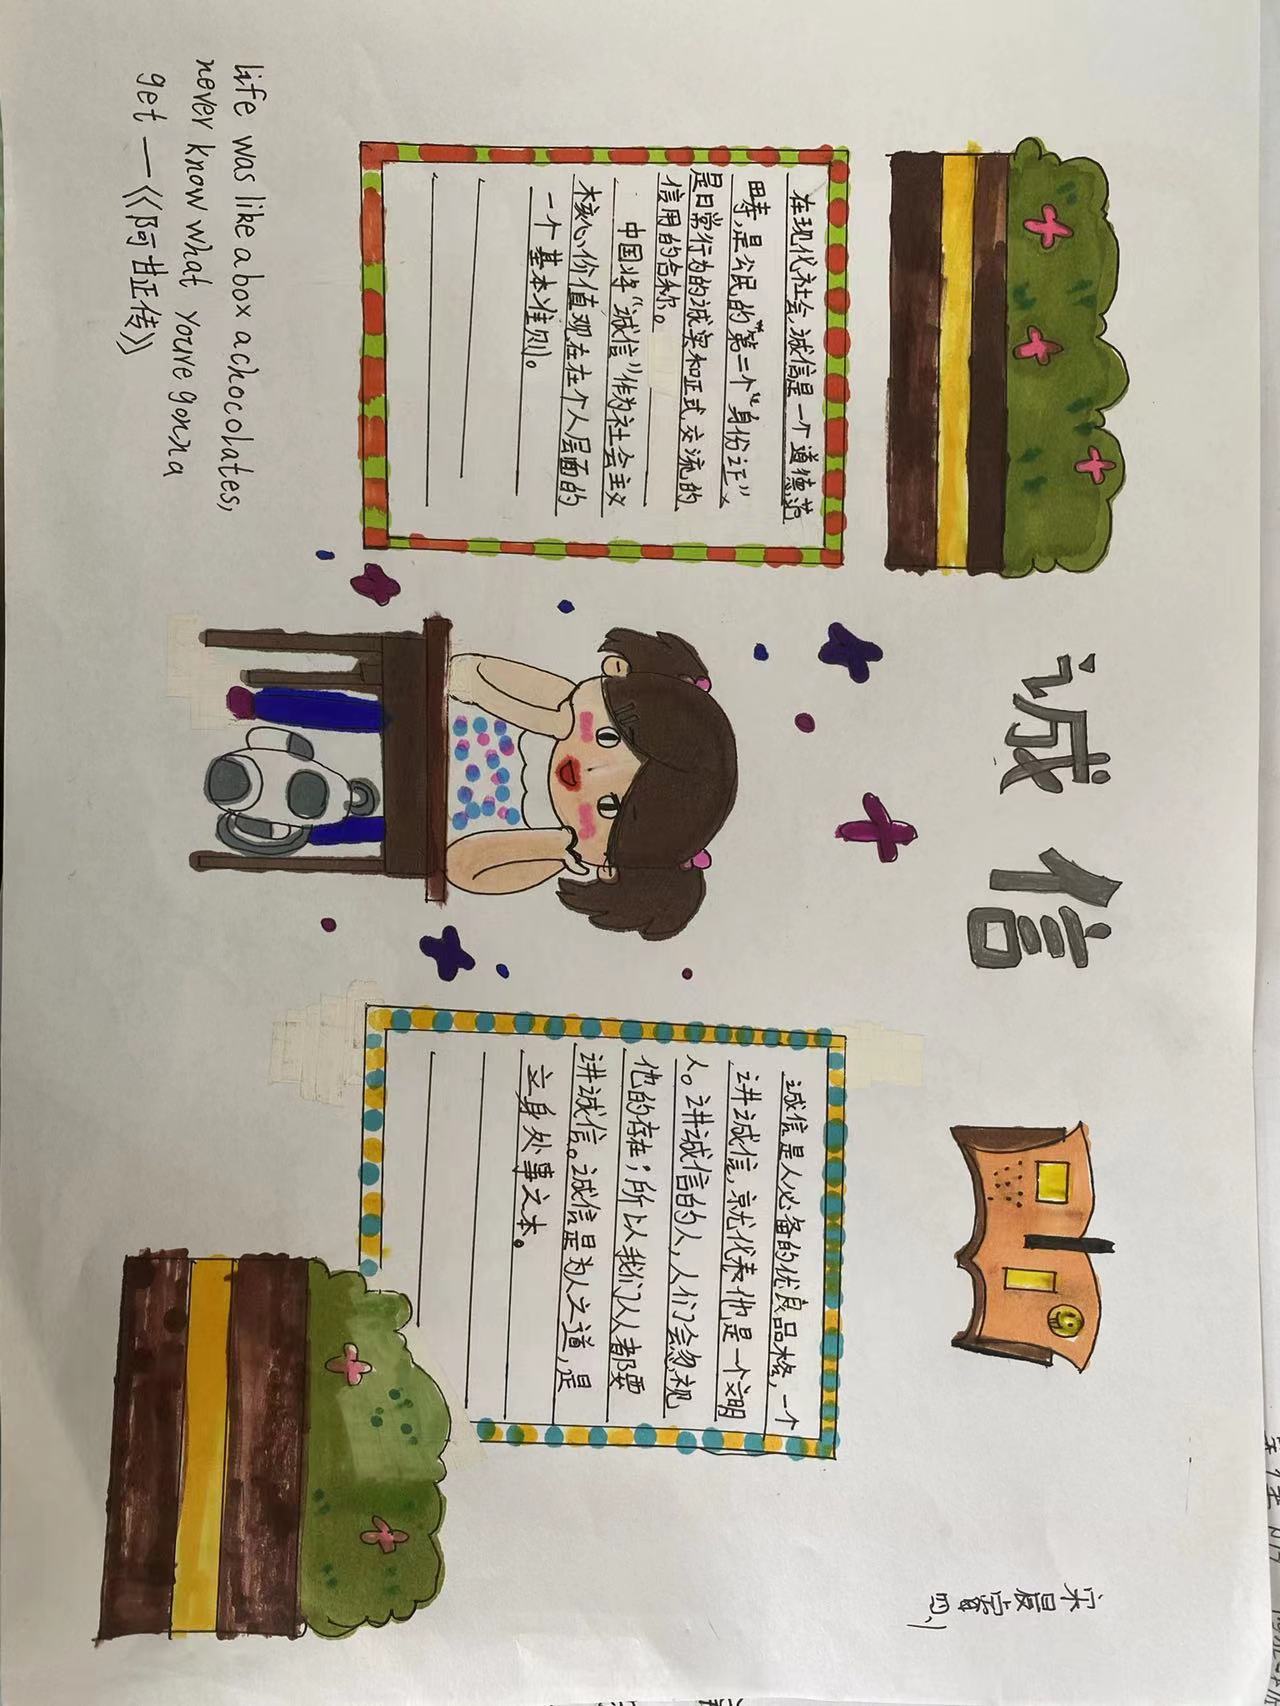 诚信
宋晨宾
四、1
在现代社会,诚信是一个道德范
畴,是公民的“第二个“身份证”
是日常行为的诚实和正式交流的
信用的合称。
中国将“诚信”作为社会主义
核心价值观在在个人层面的
一个基本准则。
诚信是人必备的优良品格,一个
讲诚信,就代表他是一个文明
人。讲诚信的人,人们会忽视
他的存在;所以我们人人都要
讲诚信。诚信是为人之道,是
立身处事之本。
life was like a box achocolates,
never know what you're gonna
get —《阿甘正传》